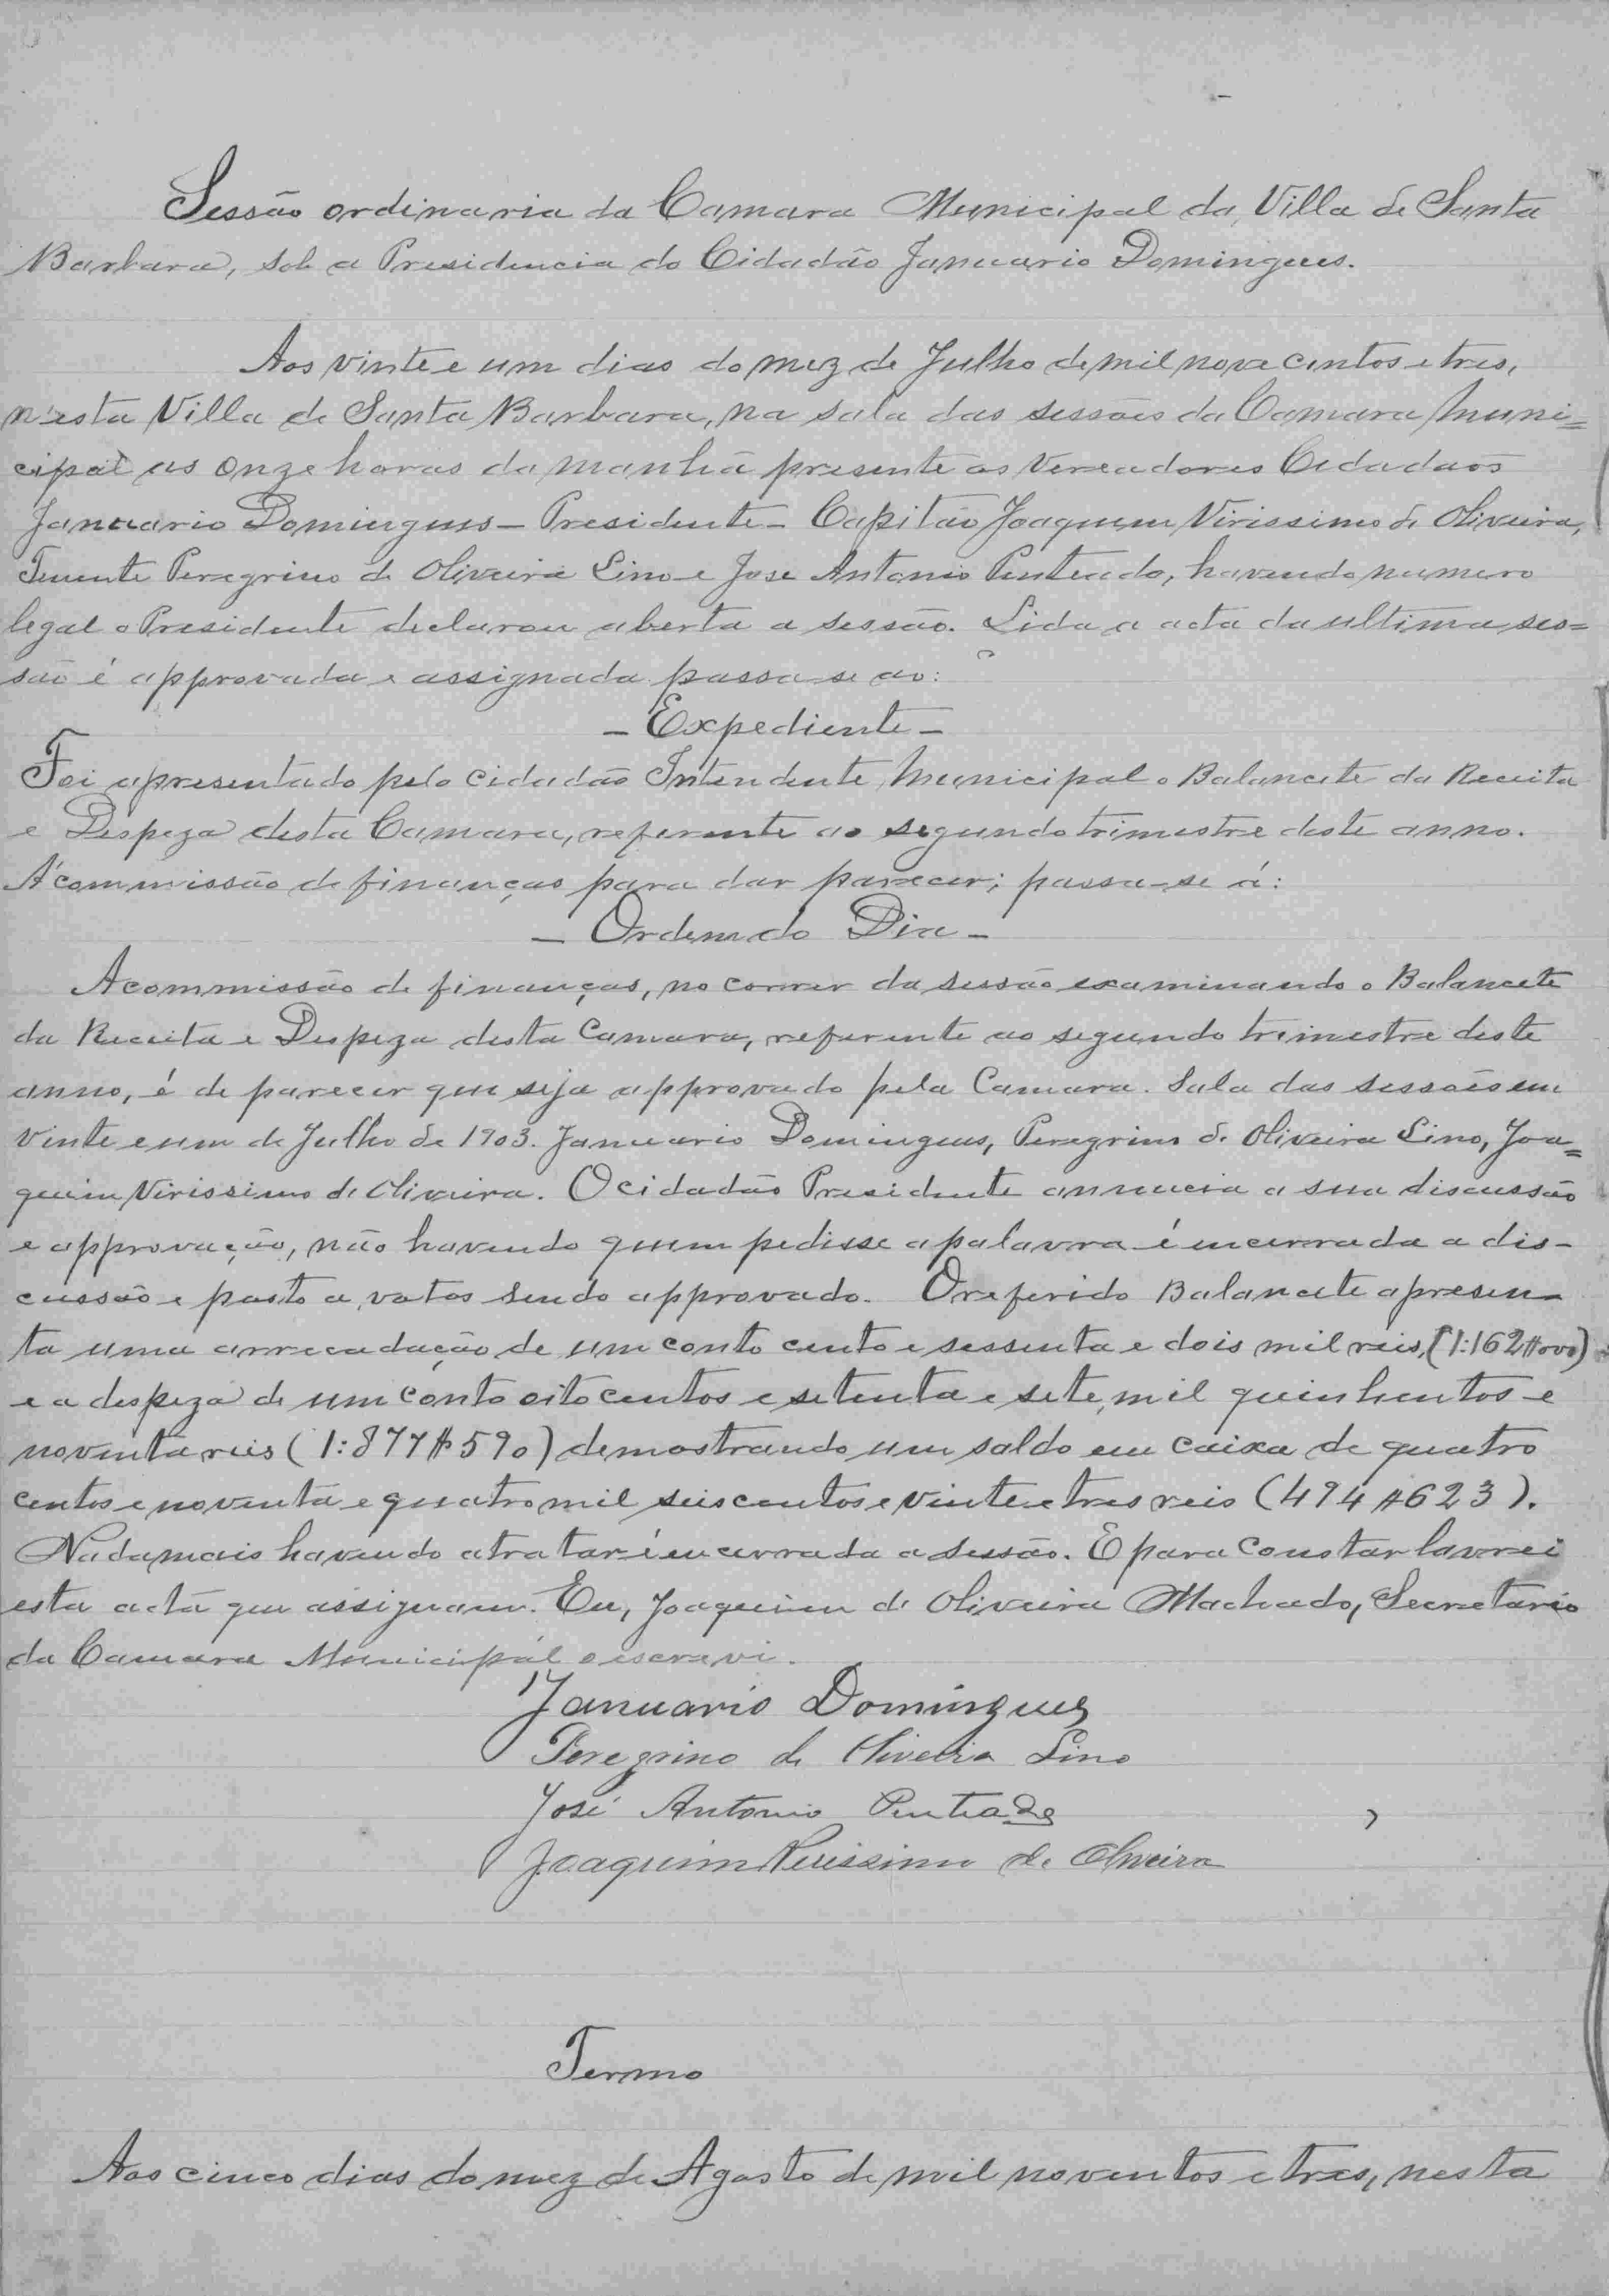 Sessão ordinaria da Camara Municipal da Villa de Santa
Barbara, sob a Presidencia do Cidadão Januario Domingues.
Aos vinte e um dias do mez de Julho de mil nove centos e tres,
n'esta Villa de Santa Barbara, na sala das sessões da Camara Muni=
cipal as onze horas da manhã presente os Vereadores Cidadaõs
Januario Domingues - Presidente - Capitão Joaquim Virissimo de Oliveira,
Tenente Peregrino de Oliveira Lino e Jose Antonio Penteado, havendo numero
legal o Presidente declarou aberta a sessão. Lida a acta da ultima ses=
são é approvada e assignada passa-se ao:
- Expediente -
Foi apresentado pelo cidadão Intendente Municipal o Balancete da Receita
e Despeza desta Camara, referente ao segundo trimestre deste anno.
Á commissão de finanças para dar parecer; passa-se á:
- Ordem do Dia -
A commissão de finanças, no correr da sessão examinando o Balancete
da Receita e Despeza desta Camara, referente ao segundo trimestre deste
anno, é de parecer que seja approvado pela Camara. Sala das sessões em
vinte e um de Julho de 1903. Januario Domingues, Peregrino de Oliveira Lino, Joa=
quim Virissimo de Oliveira. O cidadão Presidente annuncia a sua discussão
e approvação, não havendo quem pedisse a palavra é encerrada a dis-
cussão e posto a votos sendo approvado. O referido Balancete apresen-
ta uma arrecadação de um conto cento e sessenta e dois mil reis, (1:162$000)
e a despeza de um conto oito centos e setenta e sete mil quinhentos e
noventa reis (1:877$590) demostrando um saldo em caixa de quatro
centos e noventa e quatro mil seis centos e vinte e tres reis (494$623).
Nada mais havendo a tratar é encerrada a sessão. E para constar lavrei
esta acta que assignam. Eu, Joaquim de Oliveira Machado, Secretario
da Camara Municipal o escrevi.
Januario Domingues
Peregrino de Oliveira Lino
José Antonio Penteado
Joaquim Verissimo de Oliveira
Termo
Aos cinco dias do mez de Agosto de mil noventos e tres, nesta